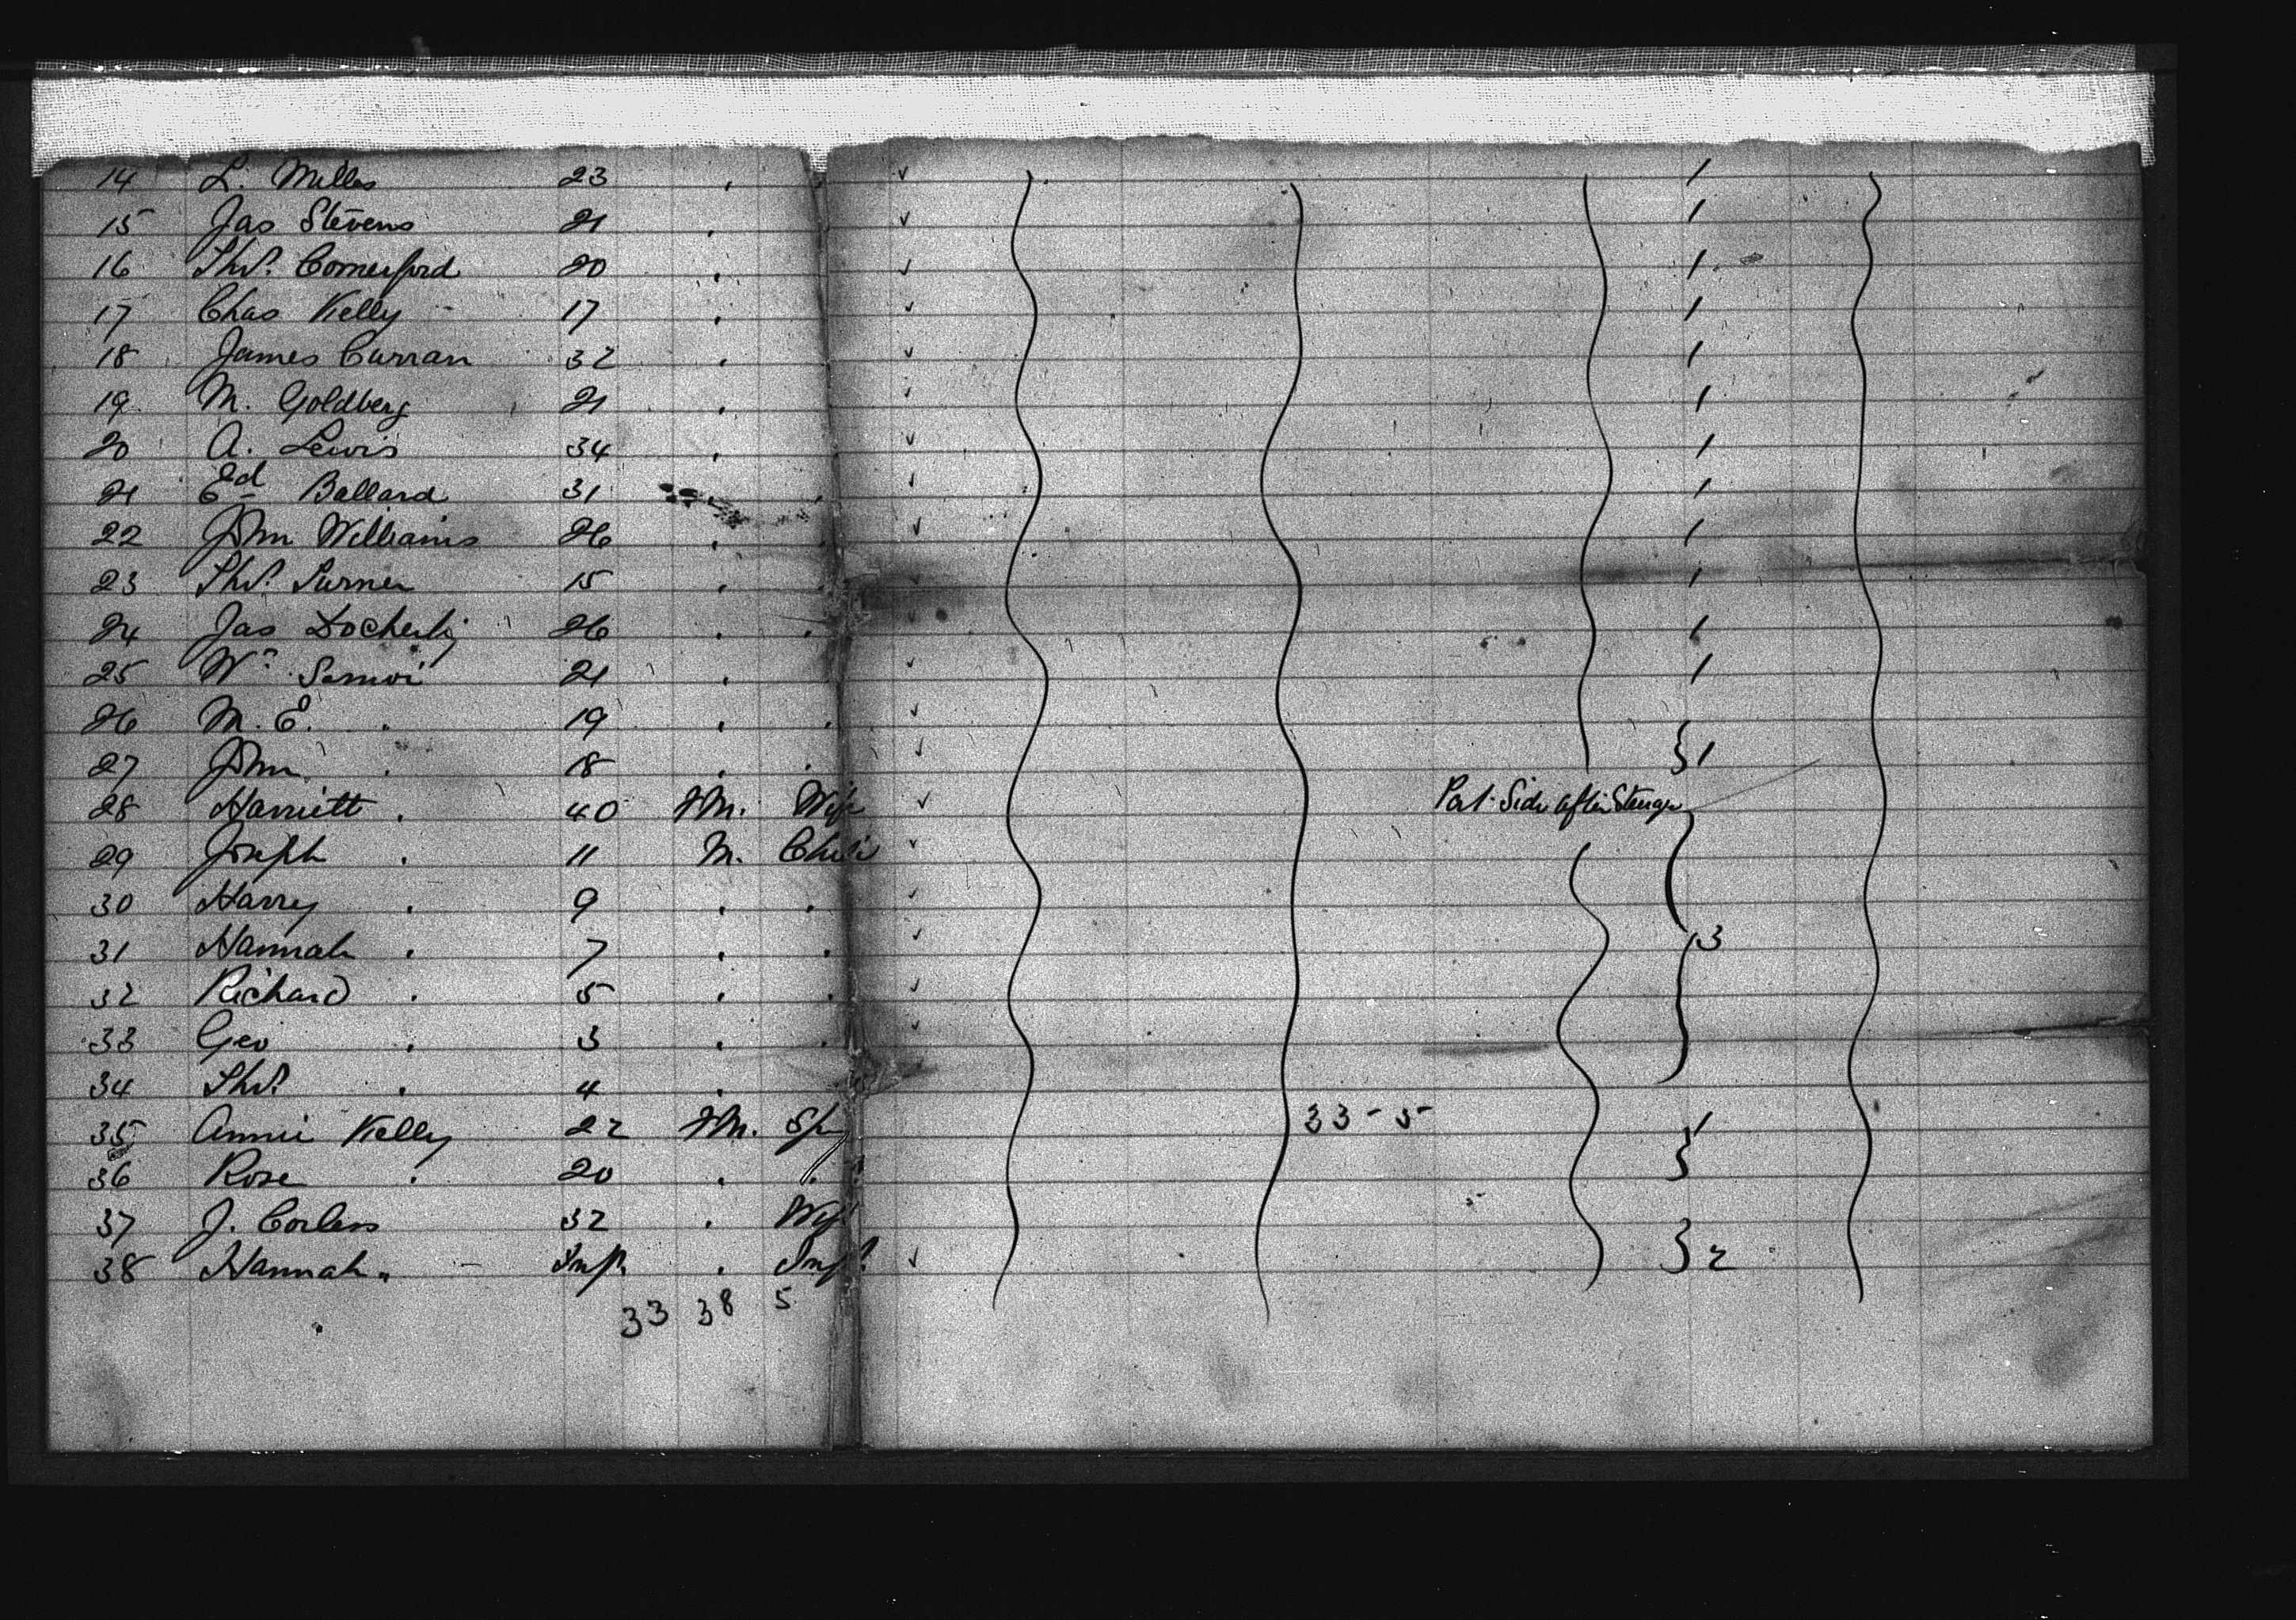 14 L. Milles 23 . ✓ 1
15 Jas Stevens 21 . ✓ 1
16 Thos. Comerford 20 . ✓ 1
17 Chas Kelly 17 . ✓ 1
18 James Curran 32 . ✓ 1
19 M. Goldberg 21 . ✓ 1
20 A. Lewis 34 . ✓ 1
21 Ed Ballard 31 . ✓ 1
22 John Williams 26 . ✓ 1
23 Thos. Turner 15 . ✓ 1
24 Jas Docherty 26 . . ✓ 1
25 Wm 21 . ✓ 1
26 M. E. . 19 . . ✓
27 John . 18 . . ✓ } 1
28 Harriett . 40 FM. Wife ✓ Port Side after Steerage
29 Joseph . 11 M. Child ✓
30 Harry . 9 . . ✓
31 Hannah . 7 . . ✓ 13
32 Richard . 5 . . ✓
33 Geo . 3 . . ✓
34 Thos. . 4 .
35 Annie Kelly 22 FM. Sp 33 - 5 1
36 Rose . 20 . . }
37 J. Corless 32 . Wife
38 Hannah " Inft. . Inft. ✓ } 2
33 38 5